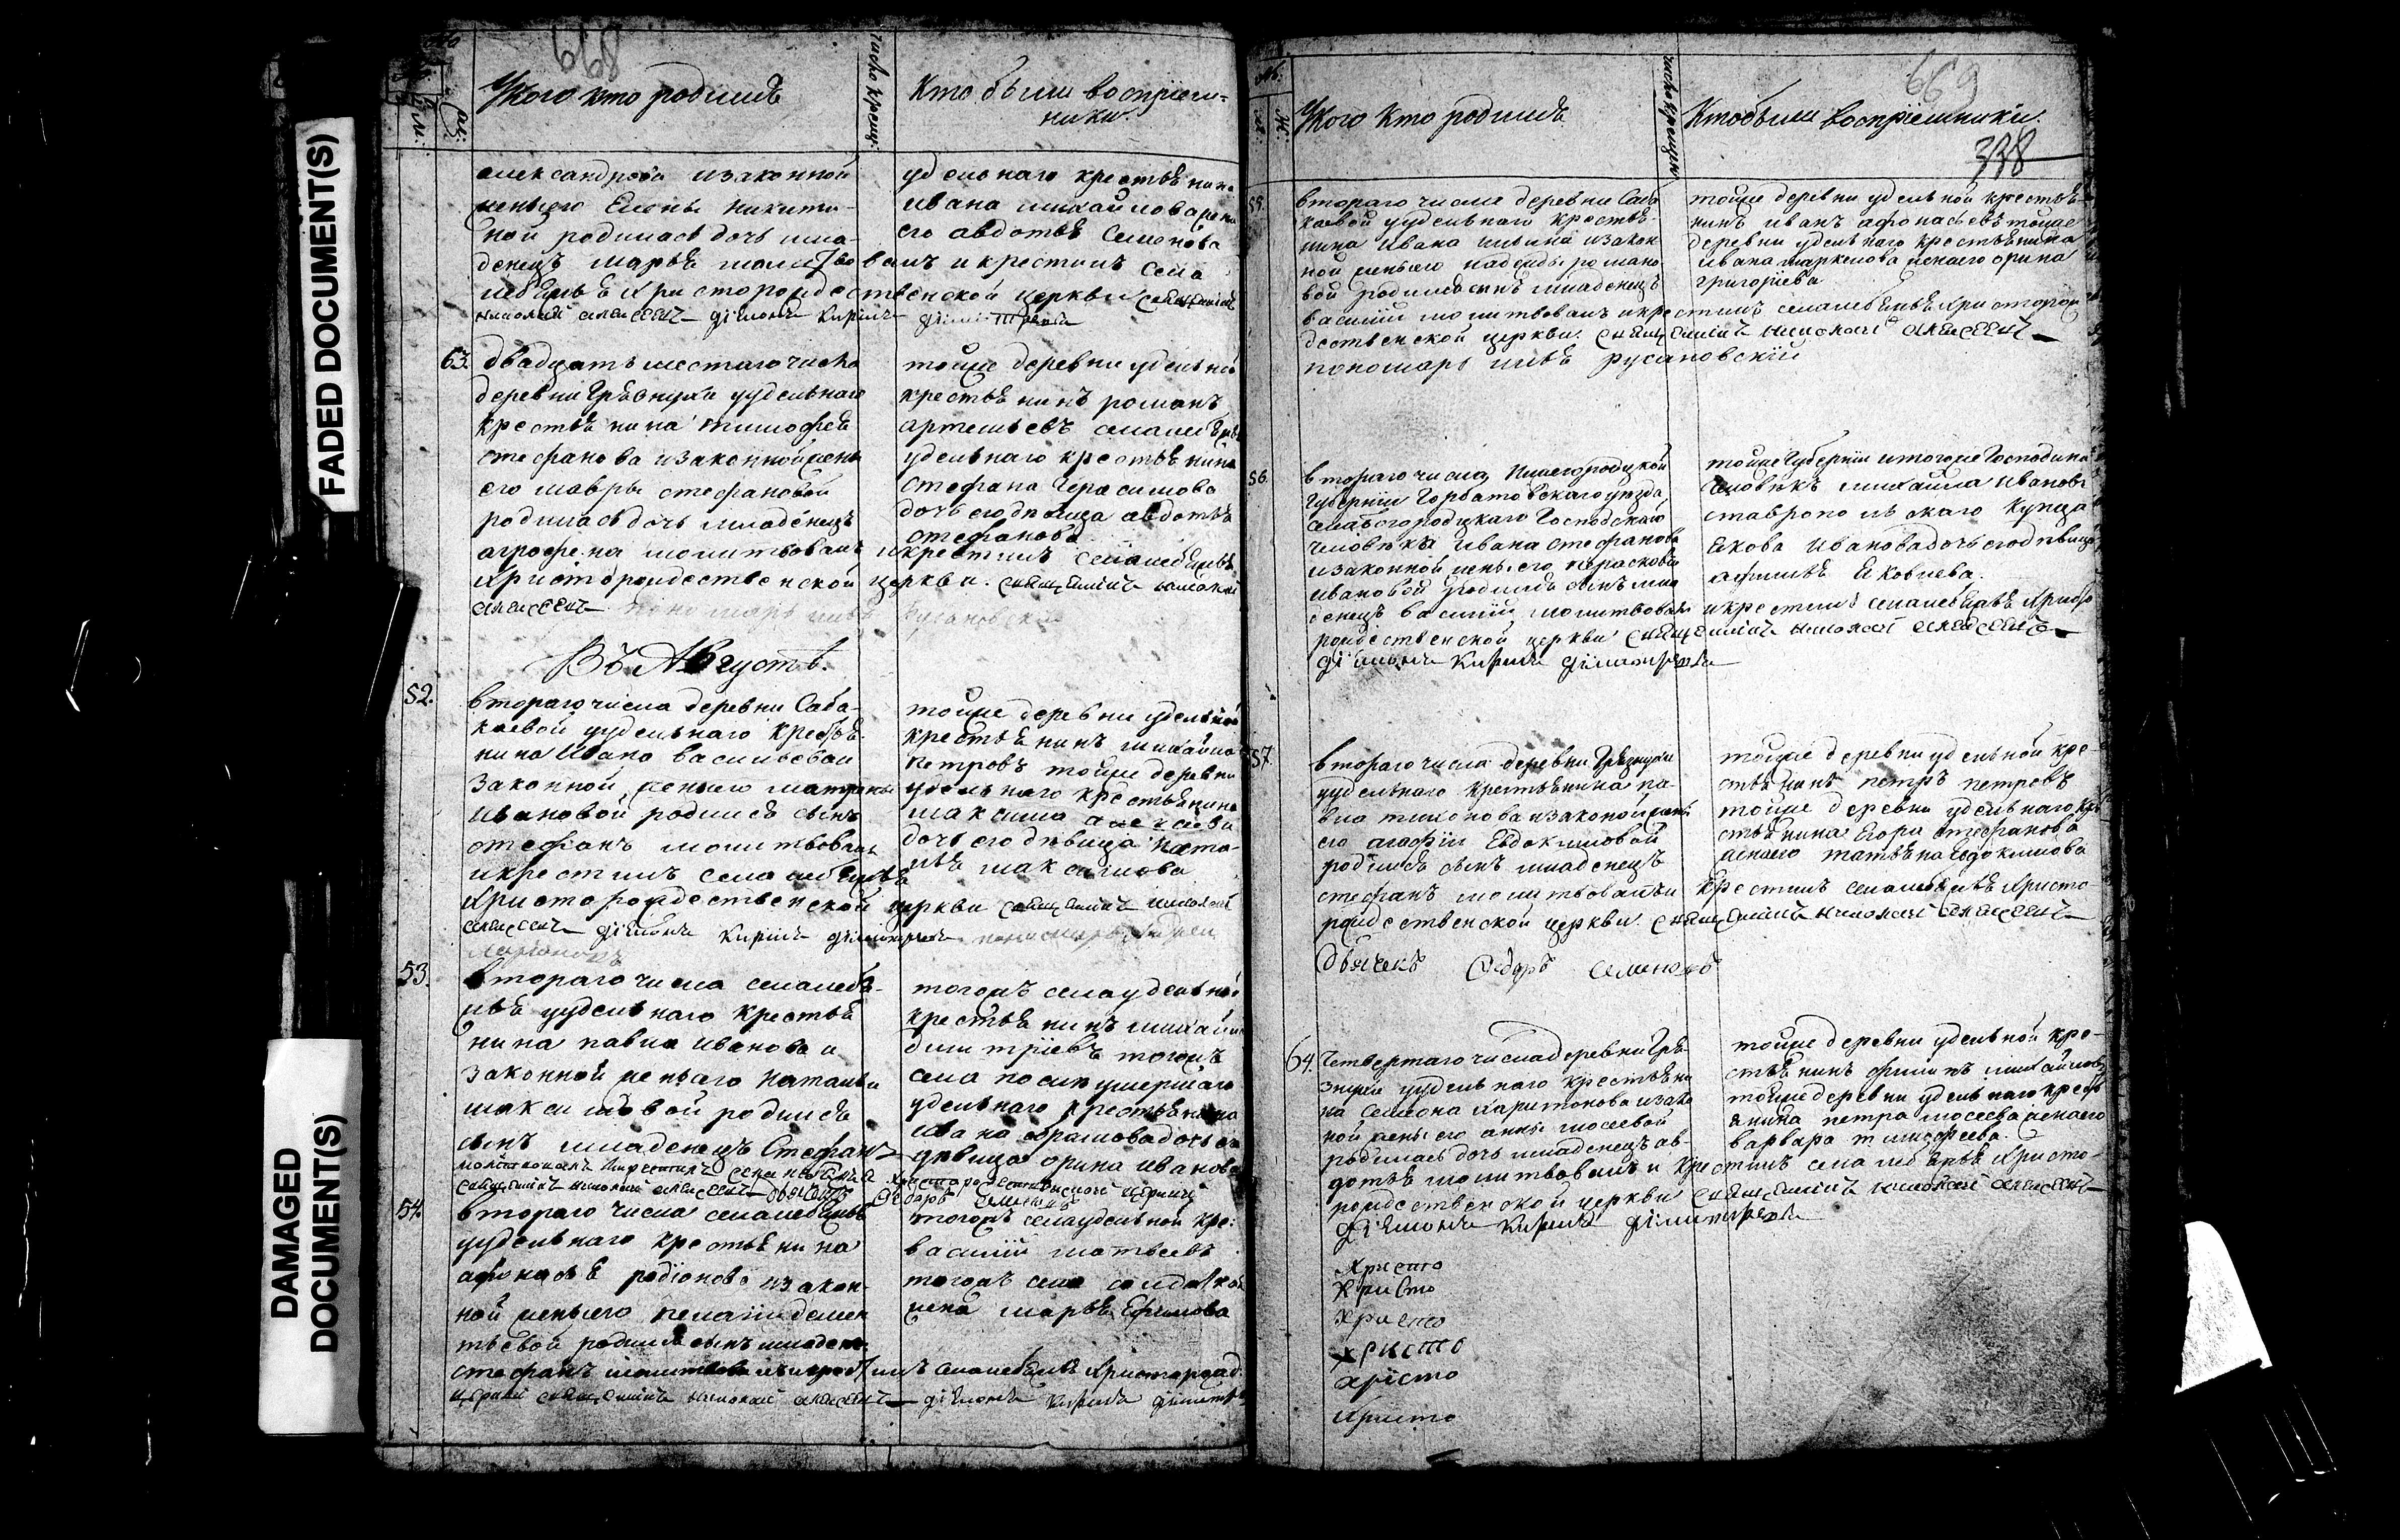 FADED DOCUMENT(S)
DAMAGED
DOCUMENT(S)
668
У кого кто родился
число крещ:
Кто были воспріем-
ники
м:
александрова и законной
жены его Елены никити-
ной родилась дочь мла-
денецъ марья молитвовалъ и крестилъ села
христорождественской церкви священникъ
николай алексеевъ діаконъ кирилъ
удельнаго крестьянина
ивана михайлова жена
его авдотья Семенова
63. двадцать шестаго числа
деревни Грязнухи у удельнаго
крестьянина тимофея
стефанова и законной жены
его мавры стефановой
родилась дочь младенецъ
агрофена молитвовалъ и крестилъ села
христорождественской церкви. священникъ николай
алексеевъ пономарь русановскій
тойже деревни удельной
крестьянинъ романъ
артемьевъ села
удельнаго крестьянина
стефана Герасимова
дочь его девица авдотья
стефанова
Въ Августѣ.
52. втораго числа деревни Саба-
каевой у удельнаго крестья-
нина Ивана васильева и
законной жены его матроны
ивановой родился сынъ
стефанъ молитвовалъ
и крестилъ села
христорождественской церкви священникъ николай
алексеевъ діаконъ кирилъ пономарь
тойже деревни удельной
крестьянинъ михайло
петровъ тойже деревни
удельнаго крестьянина
максима алексеева
дочь его девица ната-
лья максимова
53. втораго числа села
у удельнаго крестья
нина павла иванова и
законной жены его натальи
максимовой родился
сынъ младенецъ Стефанъ
молитвовалъ и крестилъ села христорождественской церкви
священникъ николай алексеевъ дьячекъ Федоръ Семеновъ
тогожъ села удельной
крестьянинъ михайла
димитріевъ тогожъ
села после умершаго
удельнаго крестьянина
ивана абрамова дочь его
девица орина иванова
54. втораго числа села
у удельнаго крестьянина
афонасья родіонова и закон-
ной жены его пелагіи демен
тьевой родился сынъ младенецъ
стефанъ молитвовалъ и крестилъ села христорожд
церкви священникъ николай алексеевъ діаконъ кирилъ
тогожъ села удельной кре:
василій матвеевъ
тогожъ села солдатская
жена марья Ефимова
669
338
У кого кто родился
число крещеня
Кто были воспріемники
55. втораго числа деревни Саба
каевой у удельнаго крестья-
нина ивана ильина и закон
ной жены его надежды романо
вой родился сынъ младенецъ
василій молитвовалъ и крестилъ села христорож
дественской церкви. священникъ николай алексеевъ
пономарь русановскій
тойже деревни удельной крестья
нинъ иванъ афонасьевъ тойже
деревни удельнаго крестьянина
ивана маркелова жена его орина
григорьева
56. втораго числа Нижегородцкой
Губерніи Горбатовскаго уезда,
села богородцкаго Господскаго
человека ивана стефанова
и законной жены его парасковьи
ивановой родился сынъ мла
денецъ василій молитвовалъ и крестилъ села христо
рождественской церкви священникъ николай алексеевъ
діаконъ кирилъ
тойже Губерніи и тогоже Господина
человекъ михайла ивановъ
ставропольскаго купца
якова иванова дочь его девица
афимья яковлева.
57. втораго числа деревни Грязнухи
у удельнаго крестьянина па-
вла тихонова и законой жены
его агафіи Евдокимовой
родился сынъ младенецъ
стефанъ молитвовалъ и крестилъ села христо
рождественской церкви священникъ николай алексеевъ
дьячекъ Федоръ Семеновъ
тойже деревни удельной кре-
стьянинъ петръ петровъ
тойже деревни удельнаго кре
стьянина Егора стефанова
жена его татьяна Евдокимова
64. Четвертаго числа деревни Гря-
знухи у удельнаго крестьяни
на семиона харитонова и зако
ной жены его анны мосеевой
родилась дочь младенецъ ав-
дотья молитвовалъ и крестилъ села христо-
рождественской церкви священникъ николай алексеевъ
діаконъ кирилъ
тойже деревни удельной кре-
стьянинъ филипъ михайловъ
тойже деревни удельнаго кресть
янина петра мосеева жена его
варвара тимофеева.
Христо
Христо
Христо
христо
христо
Христо